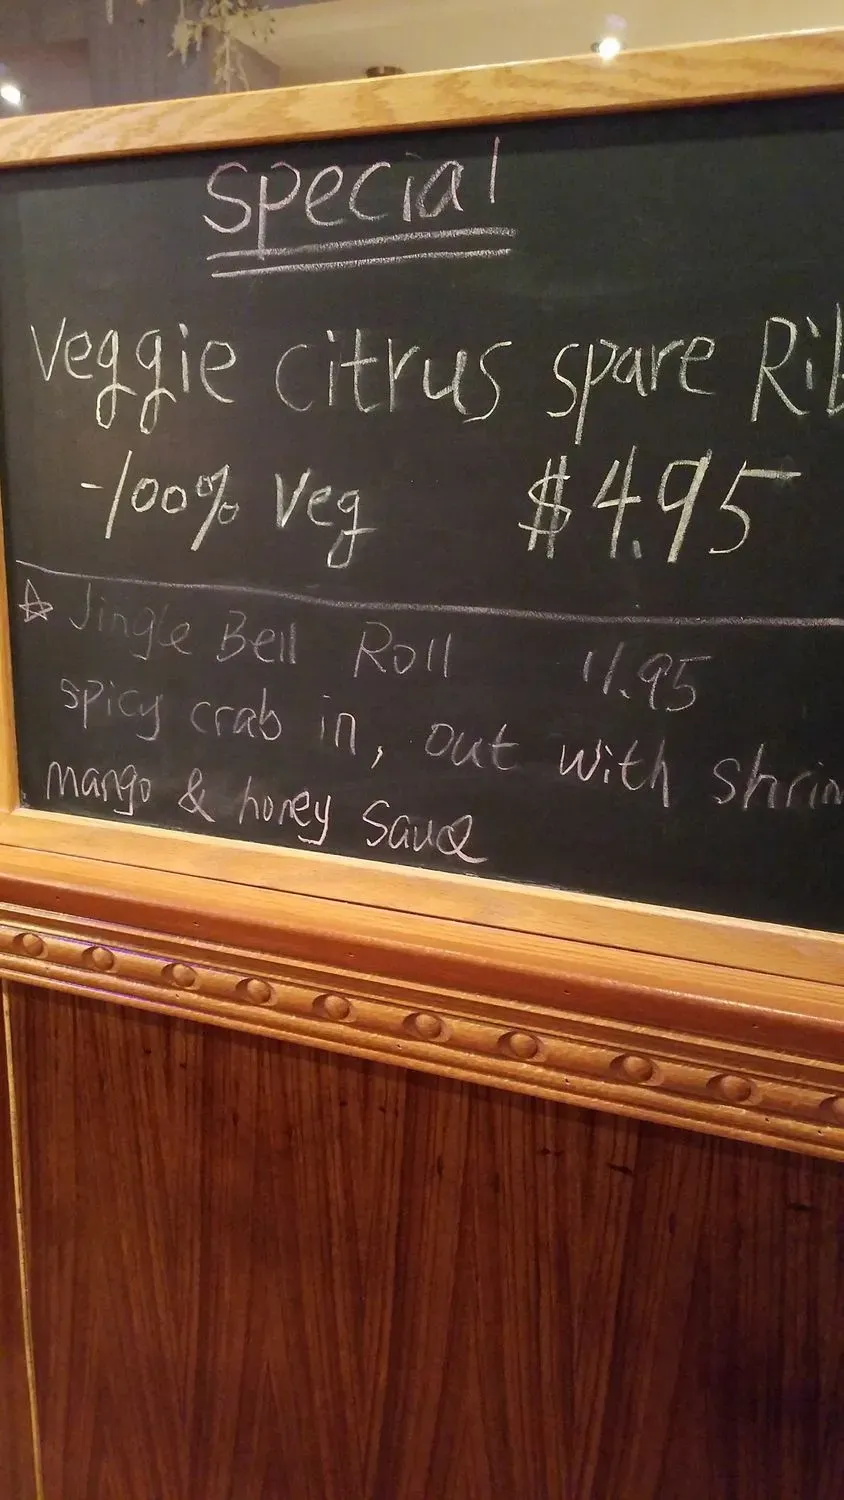 Special
Veggie citrus spare Rib
-100% Veg $4.95
☆ Jingle Bell Roll 11.95
spicy crab in, out with shrim
mango & honey Sauce